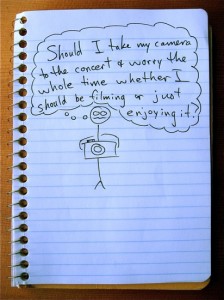 Should I take my camera
to the concert & worry the
whole time whether I
should be filming or just
enjoying it?